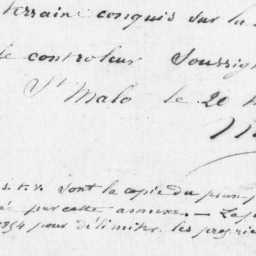 terrains conquis sur la
le controleur Soussign
St Malo le 20
sont la copie du plan
par cette annexe. — La
1894 pour délimiter les proprié